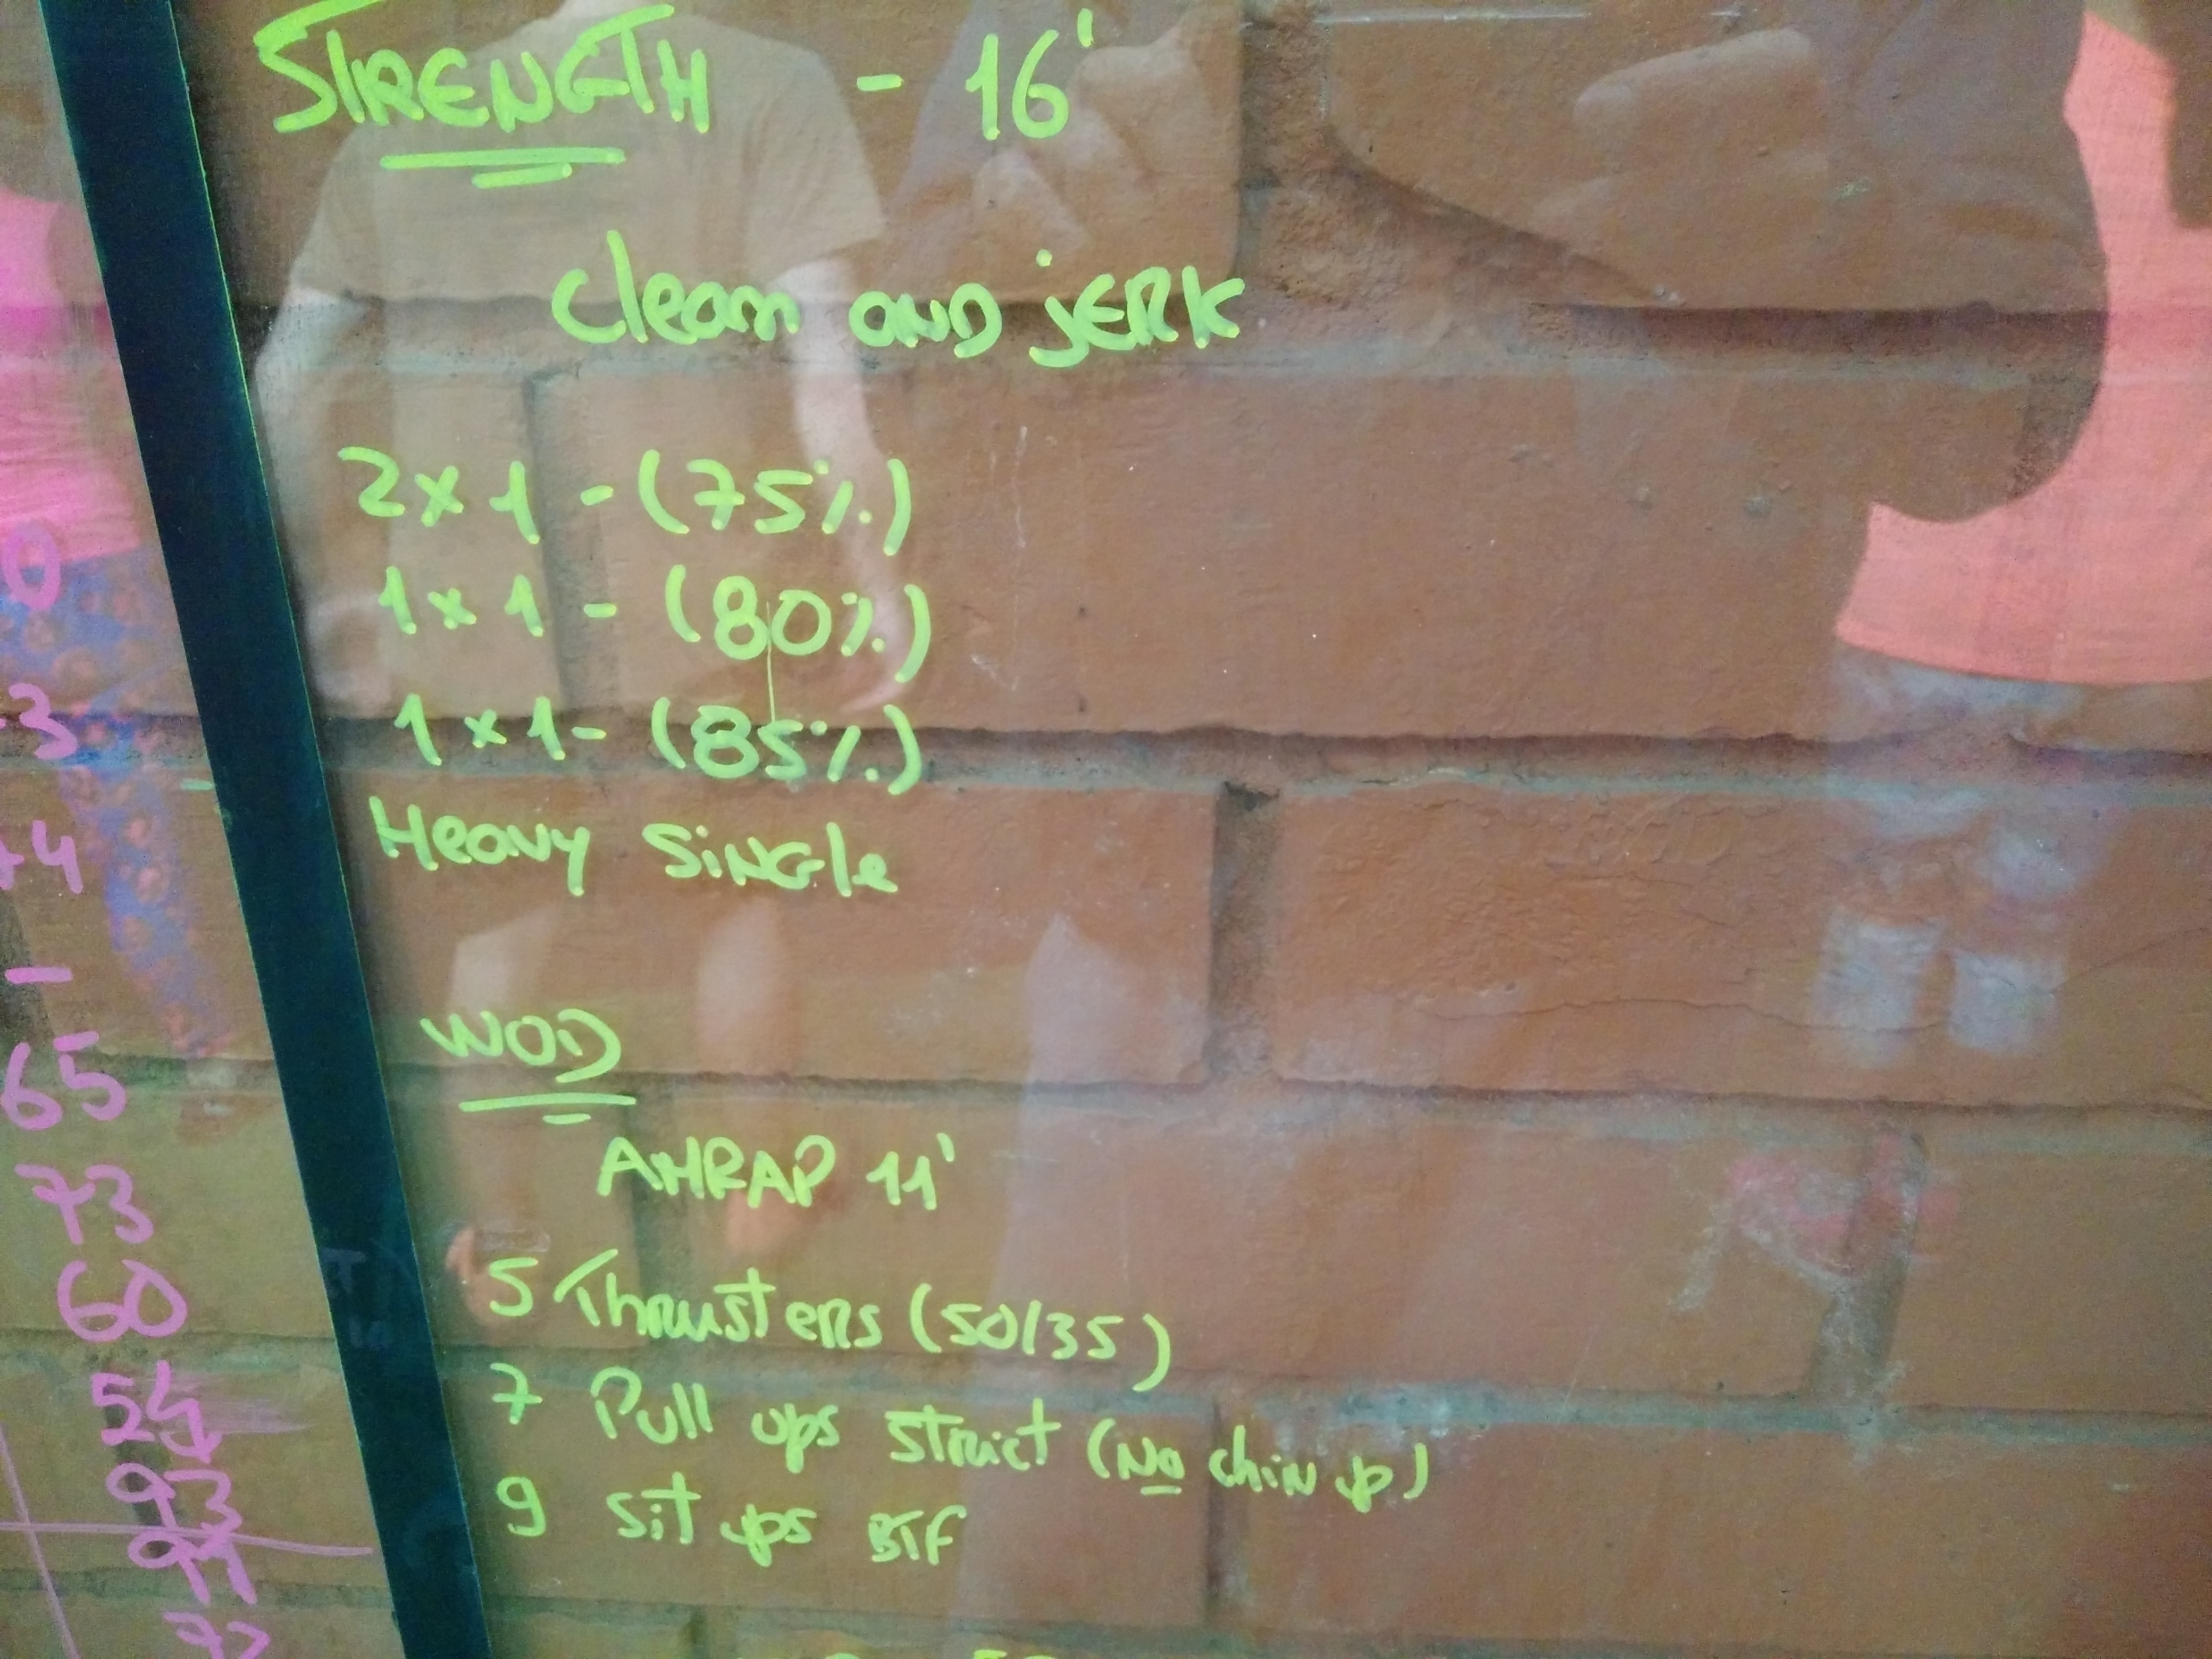 STRENGTH - 16'
Clean and jERK
2x1 - (75%)
1x1 - (80%)
1x1 - (85%)
Heavy SiNGle
WOD
AMRAP 11'
5 Thrusters (50/35)
7 Pull ups strict (No chin up)
9 sit ups BTF
0
3
4
-
65
73
60
54
93
91